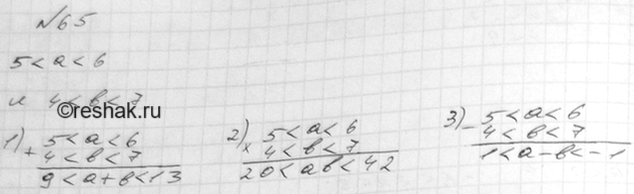 №65
5 < a < 6
и 4 < в < 7
©reshak.ru
1) + 5 < a < 6
4 < в < 7
9 < a + в < 13
2) x 5 < a < 6
4 < в < 7
20 < aв < 42
3) - 5 < a < 6
4 < в < 7
1 < a - в < -1